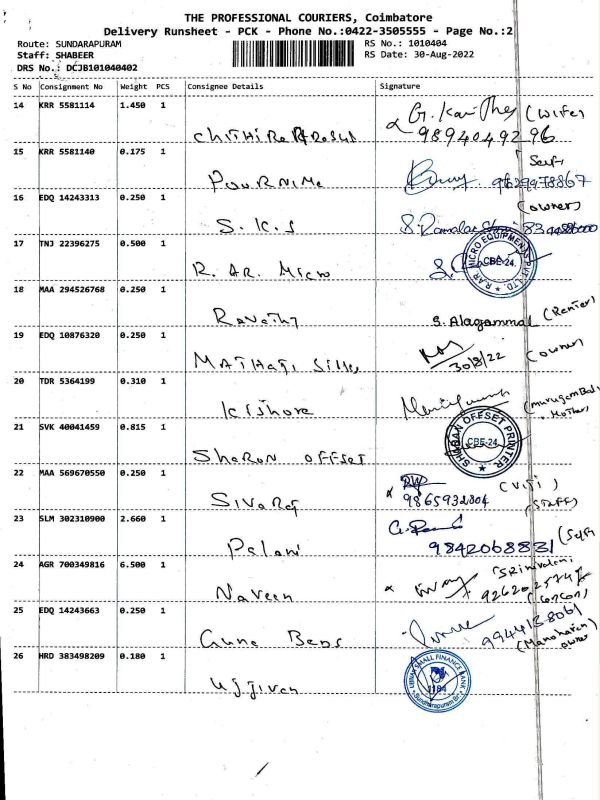 THE PROFESSIONAL COURIERS, Coimbatore
Delivery Runsheet - PCK - Phone No.:0422-3505555 - Page No.:2
Route: SUNDARAPURAM
RS No.: 1010404
Staff: SHABEER
RS Date: 30-Aug-2022
DRS No.: DCJB101040402
S No Consignment No Weight PCS Consignee Details Signature
14 KRR 5581114 1.450 1
(Wife)
9894049296
15 KRR 5581140 0.175 1
Self
POURNIMA
9629978867
16 EDQ 14243313 0.250 1
(owner)
S.K.S
17 TNJ 22396275 0.500 1
R. AR. Micro
R.AR MICRO EQUIPMENTS PVT. LTD.
CBE-24.
18 MAA 294526768 0.250 1
Revathy
S. Alagammal (Renter)
19 EDQ 10876320 0.250 1
30/8/22
(owner)
20 TDR 5364199 0.310 1
Kishore
21 SVK 40041459 0.815 1
Sharon OFFSET
SHARAN OFFSET PRINTER
CBE-24.
22 MAA 569670550 0.250 1
Sivaraj
(Viji)
9865932804
(STAFF)
23 SLM 302310900 2.660 1
Palani
(Self)
9842068831
24 AGR 700349816 6.500 1
Naveen
25 EDQ 14243663 0.250 1
Guna Beds
9944138061
(Manoharan)
owner
26 HRD 383498209 0.180 1
Ujjivan
UJJIVAN SMALL FINANCE BANK
1184
Sundharapuram Br.